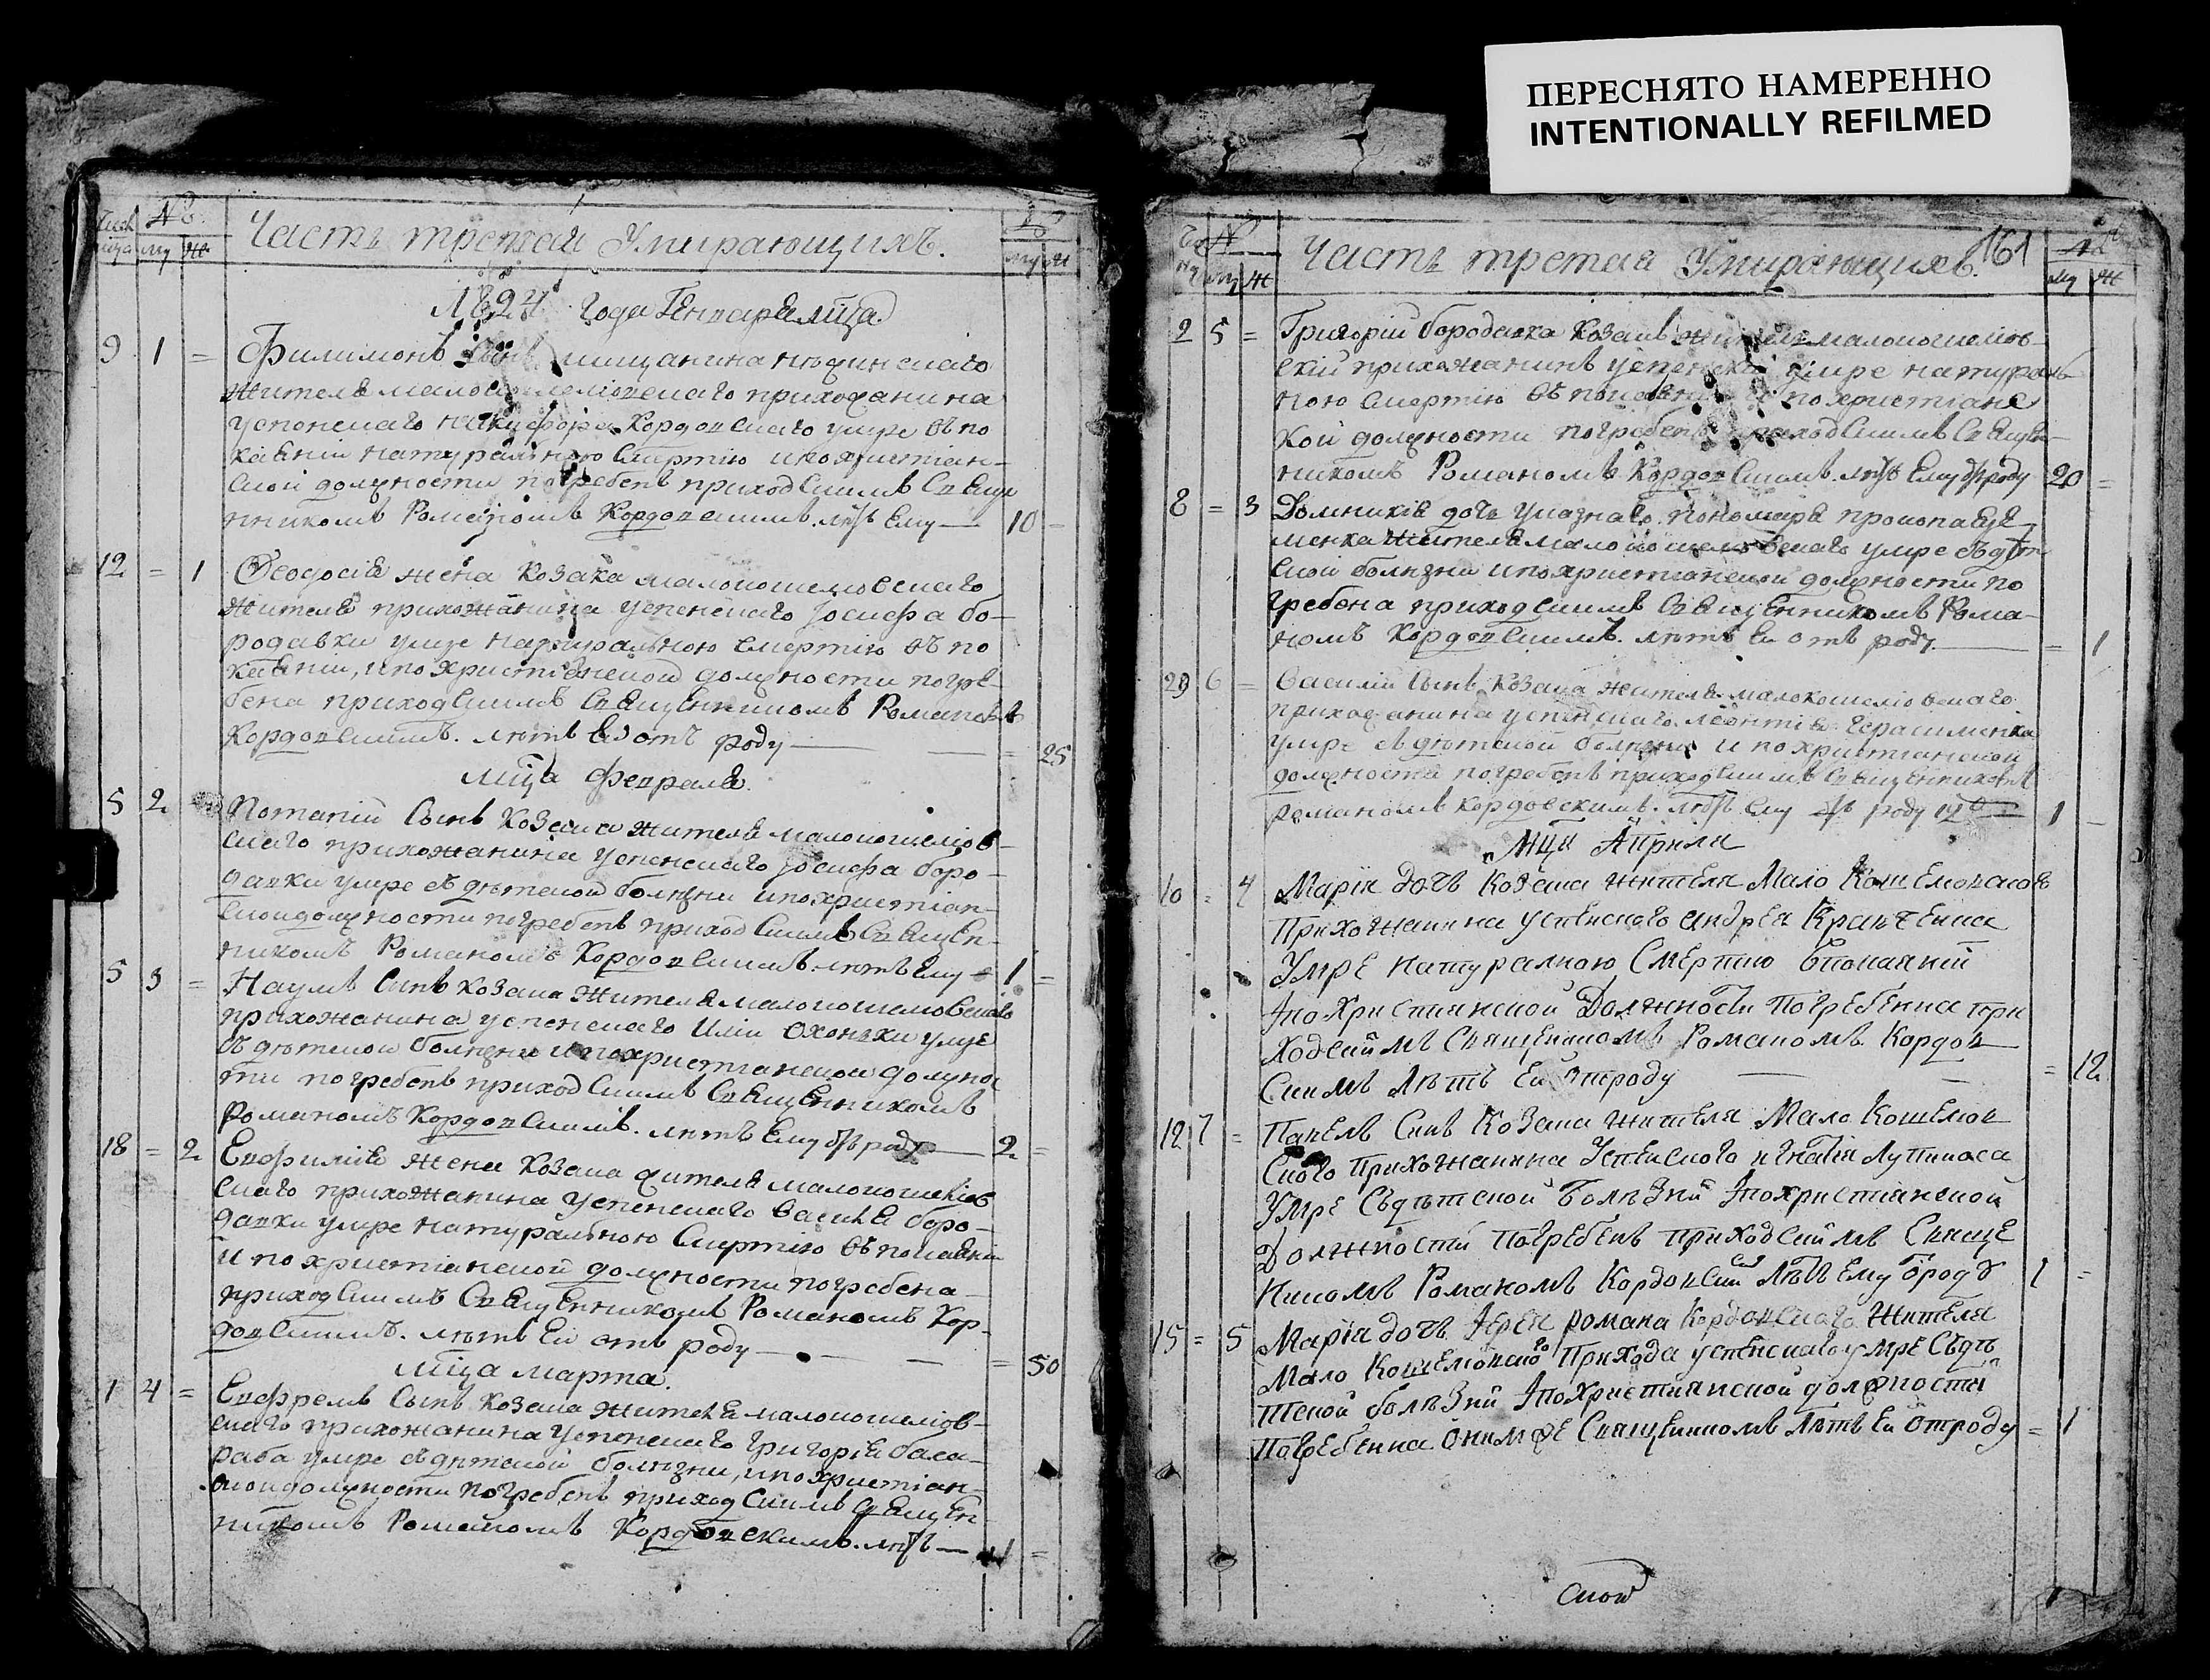 ПЕРЕСНЯТО НАМЕРЕННО
INTENTIONALLY REFILMED
Числ мца
№
му ж
Часть третая Умирающихъ.
му ж
1824 года Генваря мца
9 1 = Филимонъ Сынъ мищанина нѣжинскаго
жителя малокошелювскаго прихожанина
успенскаго Кордовскаго умре въ по
каянии натуральною Смертію и по христиан-
ской должности погребенъ приходскимъ Свяще
нникомъ Романомъ Кордовскимъ. лѣтъ Ему — 10 =
12 = 1 Феодосія жена Козака малокошеловскаго
жителя прихожанина успенскаго Іосифа бо-
родавки умре натуральною смертію въ по
каянии, и по христіанской должности погре-
бена приходскимъ Священникомъ Романомъ
Кордовскимъ. лѣтъ Ей отъ роду — = 25
Мца Февраля.
5 2 Потапій Сынъ Козака жителя малокошелюв-
скаго прихожанина успенскаго Іосифа боро-
давки умре съ дѣтской болѣзни и по христіан-
ской должности погребенъ приходскимъ Священ-
никомъ Романомъ Кордовскимъ. лѣтъ Ему — 1 =
5 3 = Наумъ Синъ козака жителя малокошеловскаго
прихожанина успенскаго умре
съ дѣтской болѣзни и по христіанской должнос
ти погребенъ приходскимъ Священникомъ
Романомъ Кордовскимъ. лѣтъ Ему отъ роду — 2 =
18 = 2 Евфимія жена козака жителя малокошелюв
скаго прихожанина успенскаго Василія боро-
давки умре натуральною Смертію въ покаянии
и по христіанской должности погребена
приходскимъ Священникомъ Романомъ Кор-
довскимъ. лѣтъ Ей отъ роду — = 50
Мца марта.
1 4 = Евфремъ Сынъ Козака жителя малокошелюв-
скаго прихожанина успенскаго Григорія бала-
раба умре съ дѣтской болѣзни, и по христіан-
ской должности погребенъ приходскимъ Священ-
никомъ Романомъ Кордовскимъ. лѣтъ — 1 =
Часть третая Умирающихъ.
161
му ж
му ж
2 5 = Григорій бородавка козакъ житель малокошелов-
скій прихожанинъ успенскій умре натураль
ною смертію въ покаянии по христианс
кой должности погребенъ приходскимъ Священ-
никомъ Романомъ Кордовскимъ. лѣтъ Ему отъ роду 20 =
8 = 3 Домникія дочь указнаго пономаря прокопа
жителя малокошеловскаго умре съ дѣт
ской болѣзни и по христианской должности по
гребена приходскимъ Священникомъ Рома-
номъ Кордовскимъ. лѣтъ Ей отъ роду — = 1
29 6 = Василій Сынъ Козака жителя малокошеловскаго
прихожанина успенскаго леонтія Герасименка
умре съ дѣтской болѣзни и по христианской
должности погребенъ приходскимъ Священникомъ
романомъ кордовскимъ. лѣтъ Ему отъ роду 1 —
Мца Априля
10 = 4 Марія дочь Козака жителя Мало Кошеловского
Прихожанина успенского андрея Кравченка
Умре натуралною Смертию впокаяній
Iпо Християнской Должности погребенна при
ходскимъ Священикомъ Романомъ Кордов
скимъ Лѣтъ Ей отроду — = 12
12 7 = Павелъ Синъ Козака жителя Мало Кошелов
ского Прихожанина Успенского игнатія
Умре Съдѣтской Болѣзни Iпохристианской
Должности Погребенъ приходскимъ Свяще
никомъ Романомъ Кордовским Лѣтъ Ему отроду 1 =
15 = 5 Марія дочъ Iерея романа Кордовскаго Жителя
Мало Кошеловского Прихода успенскаго умре Съдѣ
тской болѣзни IпоХристиянской должности
Погребенна Онимже Священикомъ Лѣтъ Ей отроду = 1